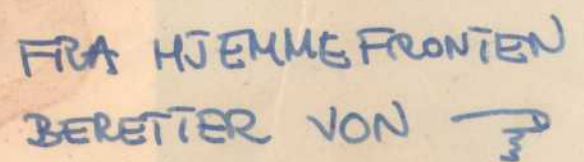 FRA HJEMMEFRONTEN
BERETTER VON